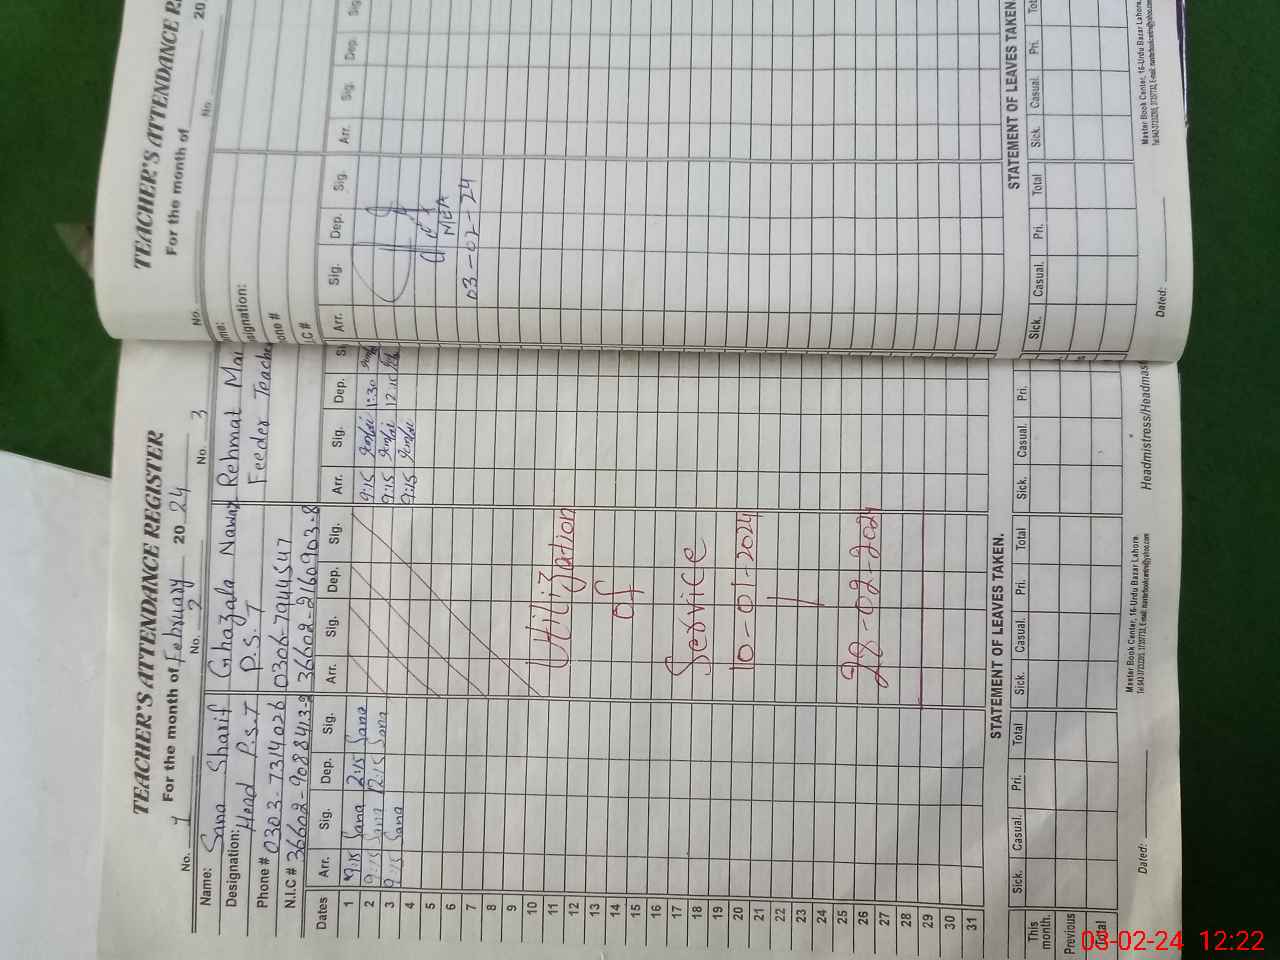 TEACHER'S ATTENDANCE REGISTER
For the month of February 20 24
No. 1 No. 2 No. 3
Name: Sana Sharif Ghazala Nawaz Rehmat
Designation: Head P.S.T P.S.T Feeder Teacher
Phone # 0303-7314026 0306-7944547
N.I.C # 36602-9088413-2 36602-2160903-8
Dates Arr. Sig. Dep. Sig. Arr. Sig. Dep. Sig. Arr. Sig. Dep.
1 9:15 Sana 2:15 Sana 9:15 1:30
2 9:15 Sana 12:15 Sana 9:15 12:15
3 9:15 Sana 9:15
4
5
6
7
8
9
10
11
12
13
14
15
16
17
18
19
20
21
22
23
24
25
26
27
28
29
30
31
Utilization
of
Service
10-01-2024
28-02-2024
STATEMENT OF LEAVES TAKEN.
Sick. Casual. Pri. Total Sick. Casual. Pri. Total Sick. Casual. Pri.
This month.
Previous
Total
Master Book Center, 16-Urdu Bazar Lahore.
Dated: Headmistress/Headmas
TEACHER'S ATTENDANCE R
For the month of 20
No. No.
me:
signation:
one #
.C #
Arr. Sig. Dep. Sig. Arr. Sig. Dep. Sig.
MEA
03-02-24
STATEMENT OF LEAVES TAKEN.
Sick. Casual. Pri. Total Sick. Casual. Pri. Tot
Master Book Center, 16-Urdu Bazar Lahore.
Dated:
03-02-24 12:22